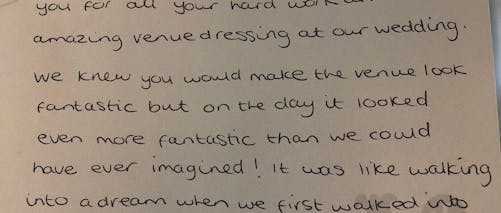 you for all your hard work
amazing venue dressing at our wedding.
we knew you would make the venue look
fantastic but on the day it looked
even more fantastic than we could
have ever imagined! it was like walking
into a dream when we first walked into